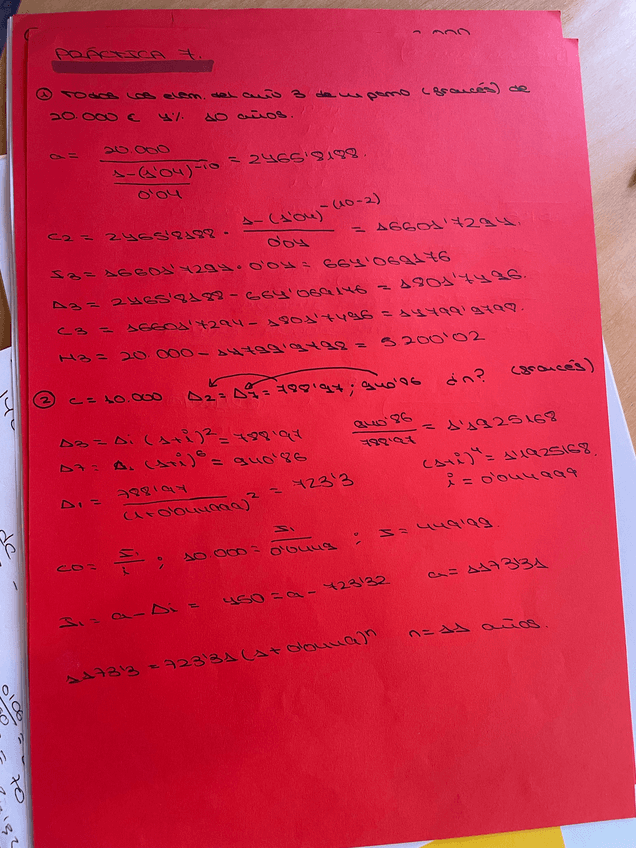 PRÁCTICA 7.
① Todos los elem. del año 3 de un pamo (francés) de
20.000 € 4% 10 años.
a = 20.000 / ((1-(1'04)^-10) / 0'04) = 2465'8188.
C2 = 2465'8188 · (1-(1'04)^-(10-2)) / 0'04 = 16601'7294.
I3 = 16601'7294 · 0'04 = 664'069176
A3 = 2465'8188 - 664'069176 = 1801'7496.
C3 = 16601'7294 - 1801'7496 = 14799'9798.
M3 = 20.000 - 14799'9798 = 5.200'02
② C = 10.000 A2 = A7 = 788'97 ; 940'86 ¿n? (francés)
A3 = A1 (1+i)^2 = 788'97 940'86 / 788'97 = 1'1925168
A7 = A1 (1+i)^6 = 940'86 (1+i)^4 = 1'1925168.
A1 = 788'97 / (1+0'044999)^2 = 723'3 i = 0'044999
C0 = I1 / i ; 10.000 = I1 / 0'0449 ; I = 449'99.
I1 = a - A1 = 450 = a - 723'32 a = 1173'31
1173'3 = 723'31 (1+0'0449)^n n = 11 años.